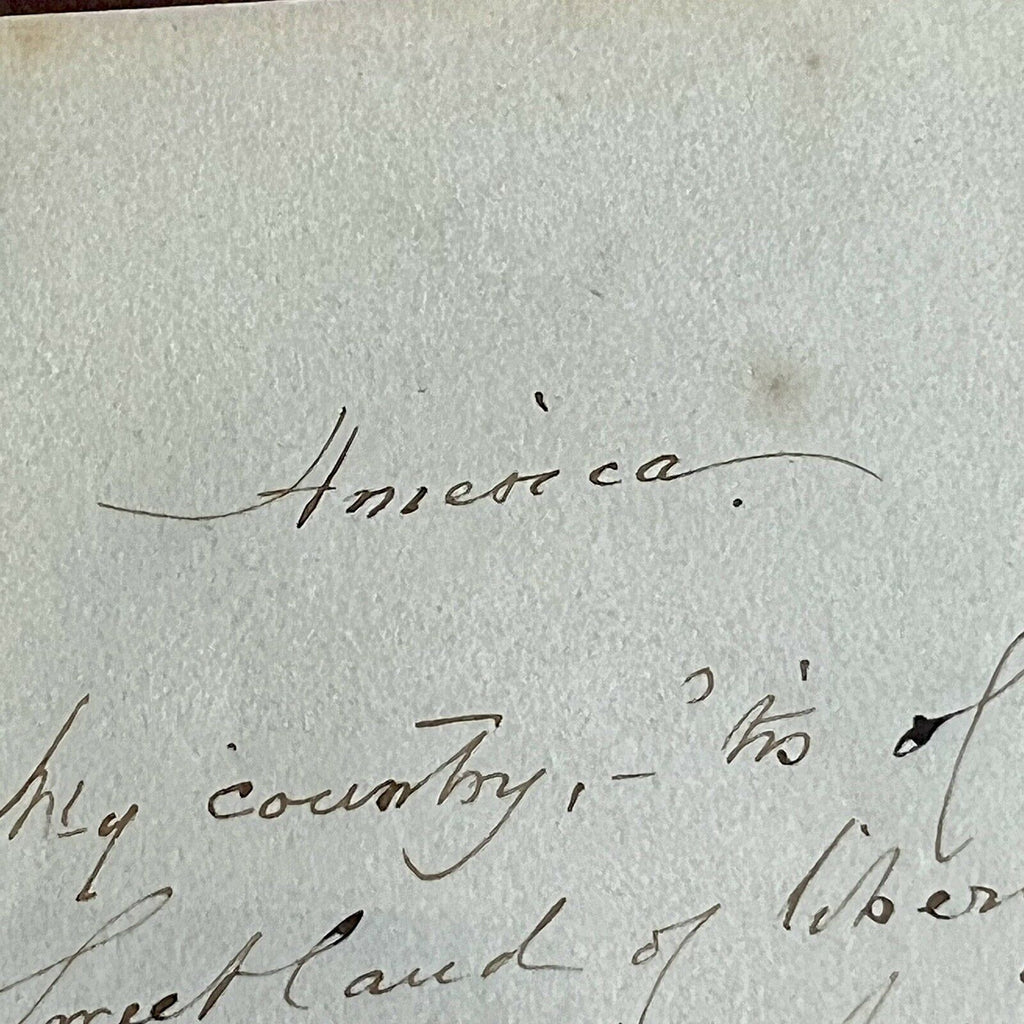 America.
My country, - 'tis of
Sweet land of liber